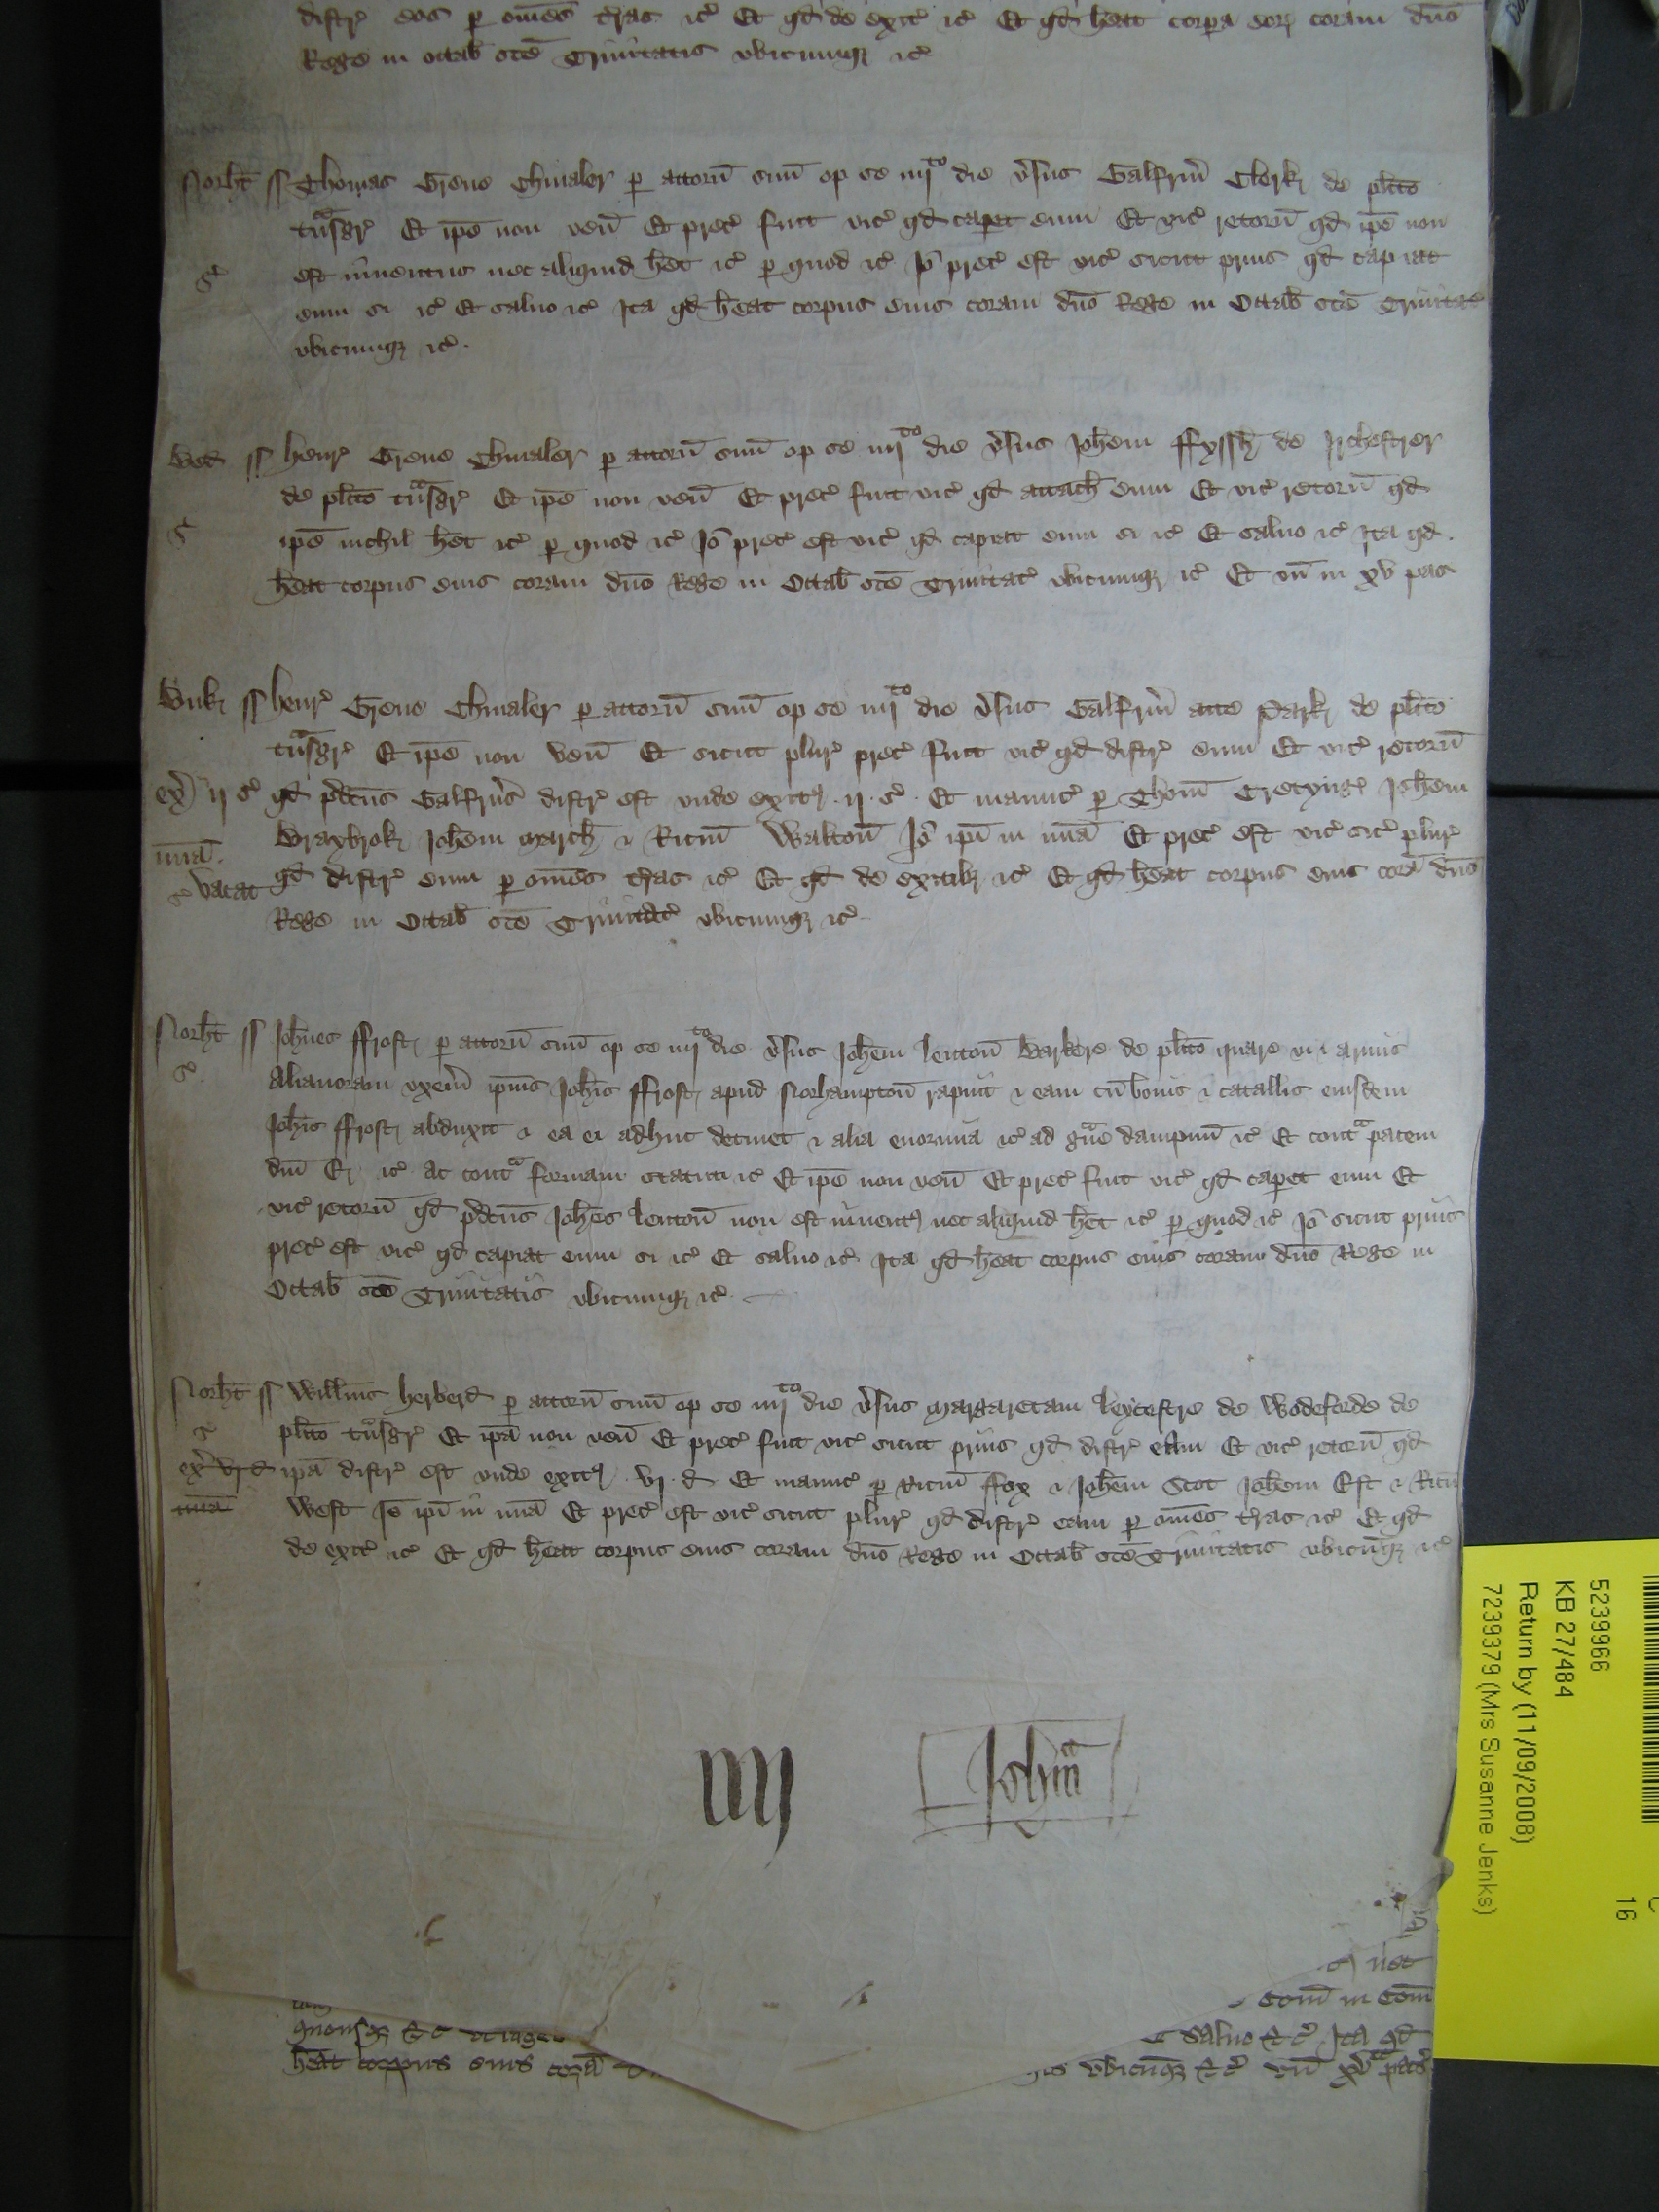 distr̃ eos p om̃es t̃ras ⁊c̃ Et qd de exit̃ ⁊c̃ Et qd h̃eat corpa eoꝝ coram dño
Rege in octab̃ sc̃e Trinitatis vbicumqꝫ ⁊c̃
Norht̃ ss Thomas Grene Chiualer p attorñ suũ op se iiij^to die ṽsus Galfrm̃ Clerk de pl̃ito
t̃nsgr̃ Et ip̃e non veñ Et prec̃ fuit vic̃ qd capet eum Et vic̃ retorñ qd ip̃e non
s̃ est inuentus nec aliquid h̃et ⁊c̃ p quod ⁊c̃ Iõ prec̃ est vic̃ sicut prius qd capiat
eum si ⁊c̃ Et saluo ⁊c̃ Ita qd h̃eat corpus eius coram dño Rege in Octab̃ sc̃e Trinitat̃
vbicumqꝫ ⁊c̃
Bed ss Henr̃ Grene Chiualer p attorñ suũ op se iiij^to die ṽsus Joh̃em ffyssh̃ de Irchestrer
de pl̃ito t̃nsgr̃ Et ip̃e non veñ Et prec̃ fuit vic̃ qd attach̃ eum Et vic̃ retorñ qd
s̃ ip̃e nichil h̃et ⁊c̃ p quod ⁊c̃ Iõ prec̃ est vic̃ qd capiat eum si ⁊c̃ Et saluo ⁊c̃ Ita qd
h̃eat corpus eius coram dño Rege in Octab̃ sc̃e Trinitat̃ vbicumqꝫ ⁊c̃ Et vñ in xv pas
Buk ss Henr̃ Grene Chiualer p attorñ suũ op se iiij^to die ṽsus Galfrm̃ atte Park de pl̃ito
t̃nsgr̃ Et ip̃e non veñ Et sicut plur̃ prec̃ fuit vic̃ qd distr̃ eum Et vic̃ retorñ
ex̃ ij s̃ qd p̃dc̃us Galfrũs distr̃ est vnde exitꝰ ij s̃ Et manuc̃ p Thom̃ Cretyng Joh̃em
Braybrok Joh̃em March̃ ⁊ Ricm̃ Waltoñ Iõ ip̃i in mĩa Et prec̃ est vic̃ sic̃ plur̃
mĩa
s̃ vacat qd distr̃ eum p om̃es t̃ras ⁊c̃ Et qd de exitibꝫ ⁊c̃ Et qd h̃eat corpus eius corã dño
Rege in Octab̃ sc̃e Trinitat̃ vbicumqꝫ ⁊c̃
Norht̃ ss Joh̃nes ffrost p attorñ suũ op se iiij^to die ṽsus Joh̃em Lentoñ Barkere de pl̃ito quare vi ⁊ armis
s̃ Alianoram vxem̃ ip̃ius Joh̃is ffrost apud Norhamptoñ rapuit ⁊ eam cũ bonis ⁊ catallis eiusdem
Joh̃is ffrost abduxit ⁊ ea ei adhuc detinet ⁊ alia enormia ⁊c̃ ad g̃ue dampnũ ⁊c̃ Et cont^a pacem
dñi R ⁊c̃ ac cont^a formam statuti ⁊c̃ Et ip̃e non veñ Et prec̃ fuit vic̃ qd capet eum Et
vic̃ retorñ qd p̃dc̃us Joh̃es Lentoñ non est inuentꝰ nec aliquid h̃et ⁊c̃ p quod ⁊c̃ Iõ sicut prius
prec̃ est vic̃ qd capiat eum si ⁊c̃ Et saluo ⁊c̃ Ita qd h̃eat corpus eius coram dño Rege in
Octab̃ sc̃e Trinitatis vbicumqꝫ ⁊c̃
Norht̃ ss Will̃ms Herberd p attorñ suũ op se iiij^to die ṽsus Margaretam Leycestre de Wodeforde de
s̃ pl̃ito t̃nsgr̃ Et ip̃a non veñ Et prec̃ fuit vic̃ sicut prius qd distr̃ eam Et vic̃ retorñ qd
ex̃ vj d ip̃a distr̃ est vnde exitꝰ vj d Et manuc̃ p Ricm̃ ffox ⁊ Joh̃em Scot Joh̃em Est ⁊ Ricm̃
mĩa West Iõ ip̃i in mĩa Et prec̃ est vic̃ sicut plur̃ qd distr̃ eam p om̃es t̃ras ⁊c̃ Et qd
de exit̃ ⁊c̃ Et qd h̃eat corpus eius coram dño Rege in Octab̃ sc̃e Trinitatis vbicũqꝫ ⁊c̃
iiij
nec
Com̃ in Com̃
saluo ⁊c̃ Ita qd
h̃eat corpus eius corã
vbicũqꝫ ⁊c̃ vñ xv pasc̃
5239966
KB 27/484
Return by (11/09/2008)
7239379 (Mrs Susanne Jenks)
16